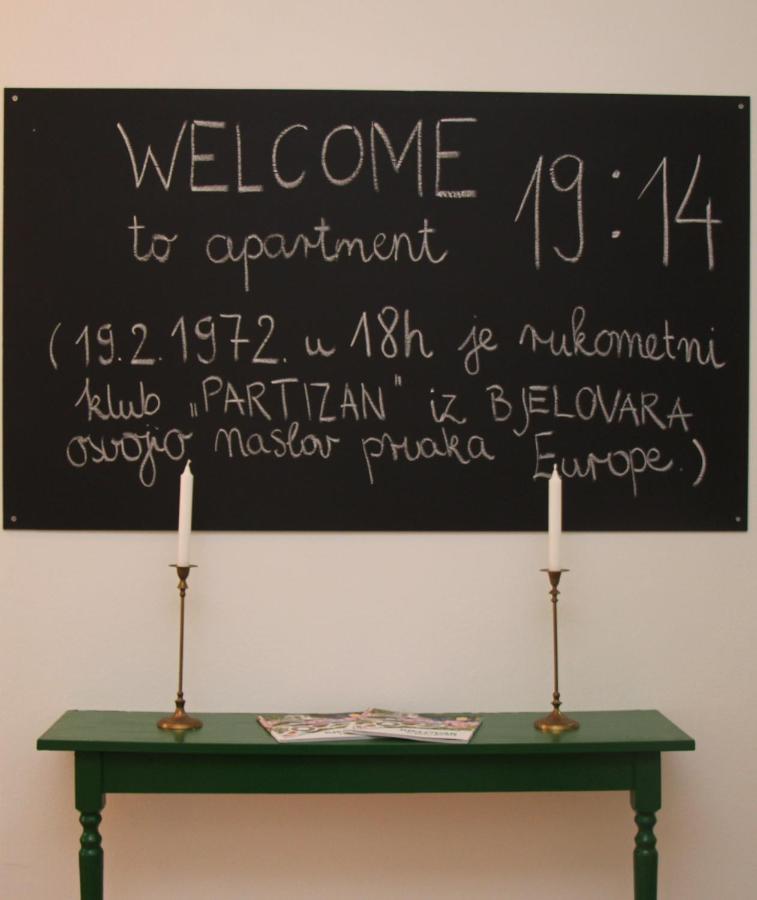 WELCOME
to apartment 19:14
(19.2.1972. u 18h je rukometni
klub „PARTIZAN" iz BJELOVARA
osvojio naslov prvaka Europe.)